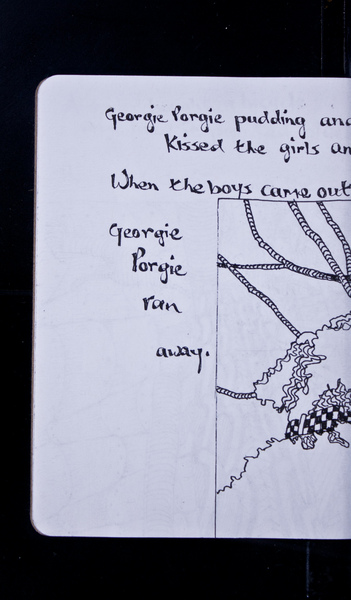 Georgie Porgie pudding and
Kissed the girls an
When the boys came out
Georgie
Porgie
ran
away.